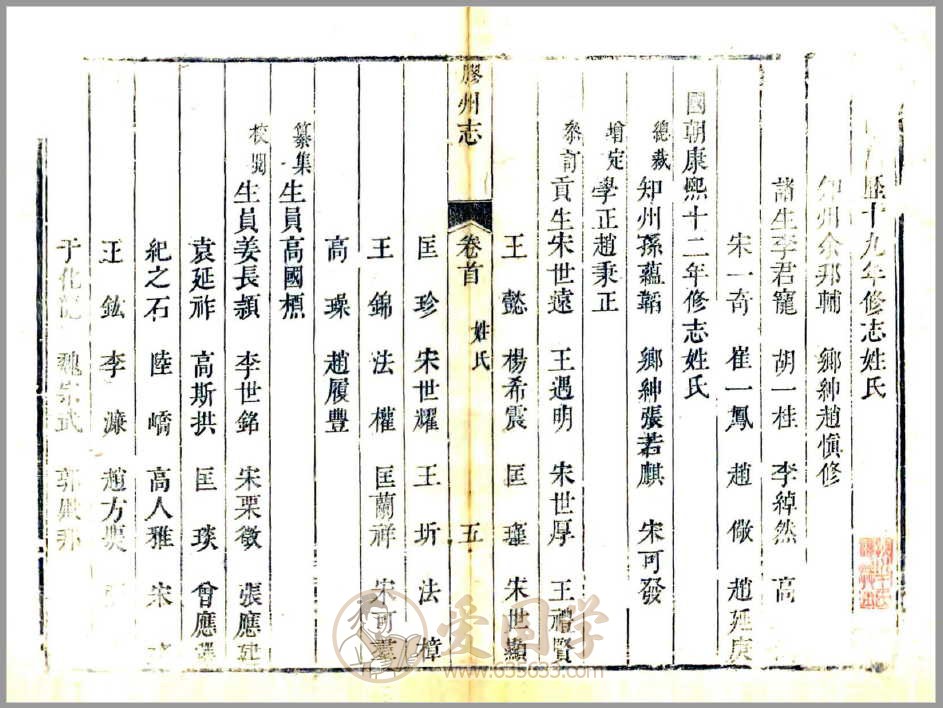 歷十九年修志姓氏
知州余邦輔　鄉紳趙愼修
諸生李君寵　胡一桂　李綽然　高
宋一奇　崔一鳳　趙　儆　趙延庚
國朝康熙十二年修志姓氏
總裁　知州孫蘊韜　鄉紳張若麒　宋可發
增定　學正趙秉正
叅訂　貢生宋世遠　王遇明　宋世厚　王禮賢
王　懿　楊希震　匡　瑾　宋世顯
膠州志　卷首　姓氏　五
匡　珍　宋世耀　王　圻　法　樟
王　錦　法　權　匡蘭祥　宋可
高　璪　趙履豐
纂集　生員高國楨
校閱　生員姜長頴　李世銘　宋栗徵　張應
袁延祚　高斯拱　匡　琰　曾應
紀之石　陸　嶠　高人雅　宋
王　鈜　李　濂　趙方奭　王
于化龍　魏宗武　郭
爱国学
www.655633.com